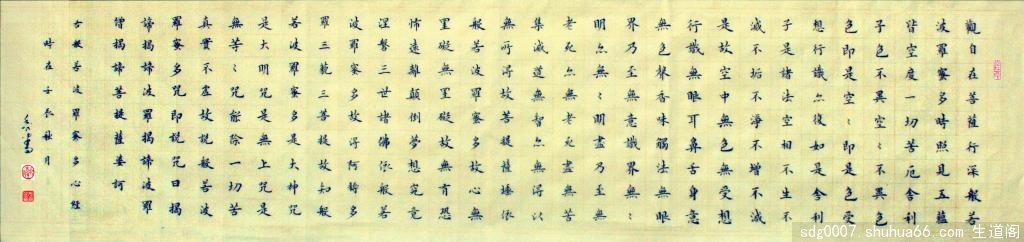 觀自在菩薩行深般若
波羅蜜多時照見五蘊
皆空度一切苦厄舍利
子色不異空〻不異色
色即是空〻即是色受
想行識亦復如是舍利
子是諸法空相不生不
滅不垢不淨不增不減
是故空中無色無受想
行識無眼耳鼻舌身意
無色聲香味觸法無眼
界乃至無意識界無〻
明亦無〻明盡乃至無
老死亦無老死盡無苦
集滅道無智亦無得以
無所得故菩提薩埵依
般若波羅蜜多故心無
罣礙無罣礙故無有恐
怖遠離顛倒夢想究竟
涅槃三世諸佛依般若
波羅蜜多故得阿耨多
羅三藐三菩提故知般
若波羅蜜多是大神咒
是大明咒是無上咒是
無等〻咒能除一切苦
真實不虛故說般若波
羅蜜多咒即說咒曰揭
諦揭諦波羅揭諦波羅
僧揭諦菩提薩婆訶
右般若波羅蜜多心經
時在壬辰秋月
sdg0007.shuhua66.com 生道阁